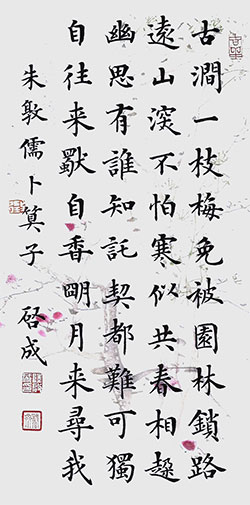 古澗一枝梅免被園林鎖路
遠山深不怕寒似共春相趓
幽思有誰知託契都難可獨
自往来獸自香朙月来尋我
朱敦儒卜算子
啓成